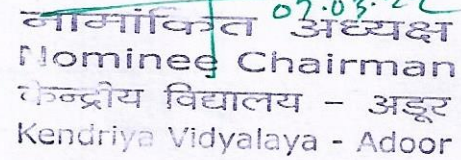 07.03.22
नामांकित अध्यक्ष
Nominee Chairman
केन्द्रीय विद्यालय – अडूर
Kendriya Vidyalaya - Adoor